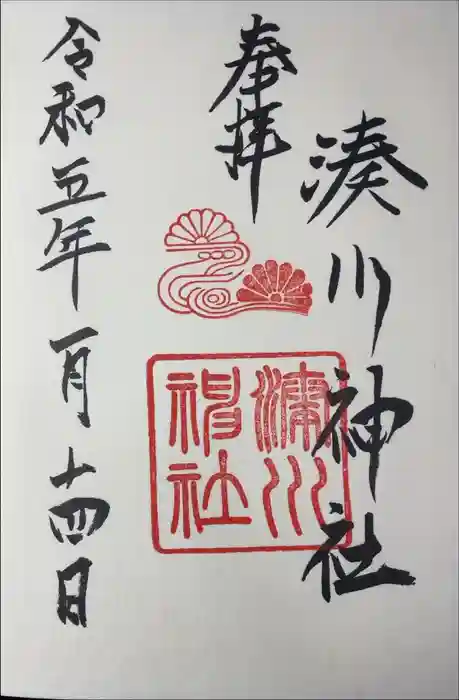 奉拝
湊川神社
湊川神社
令和五年一月十四日